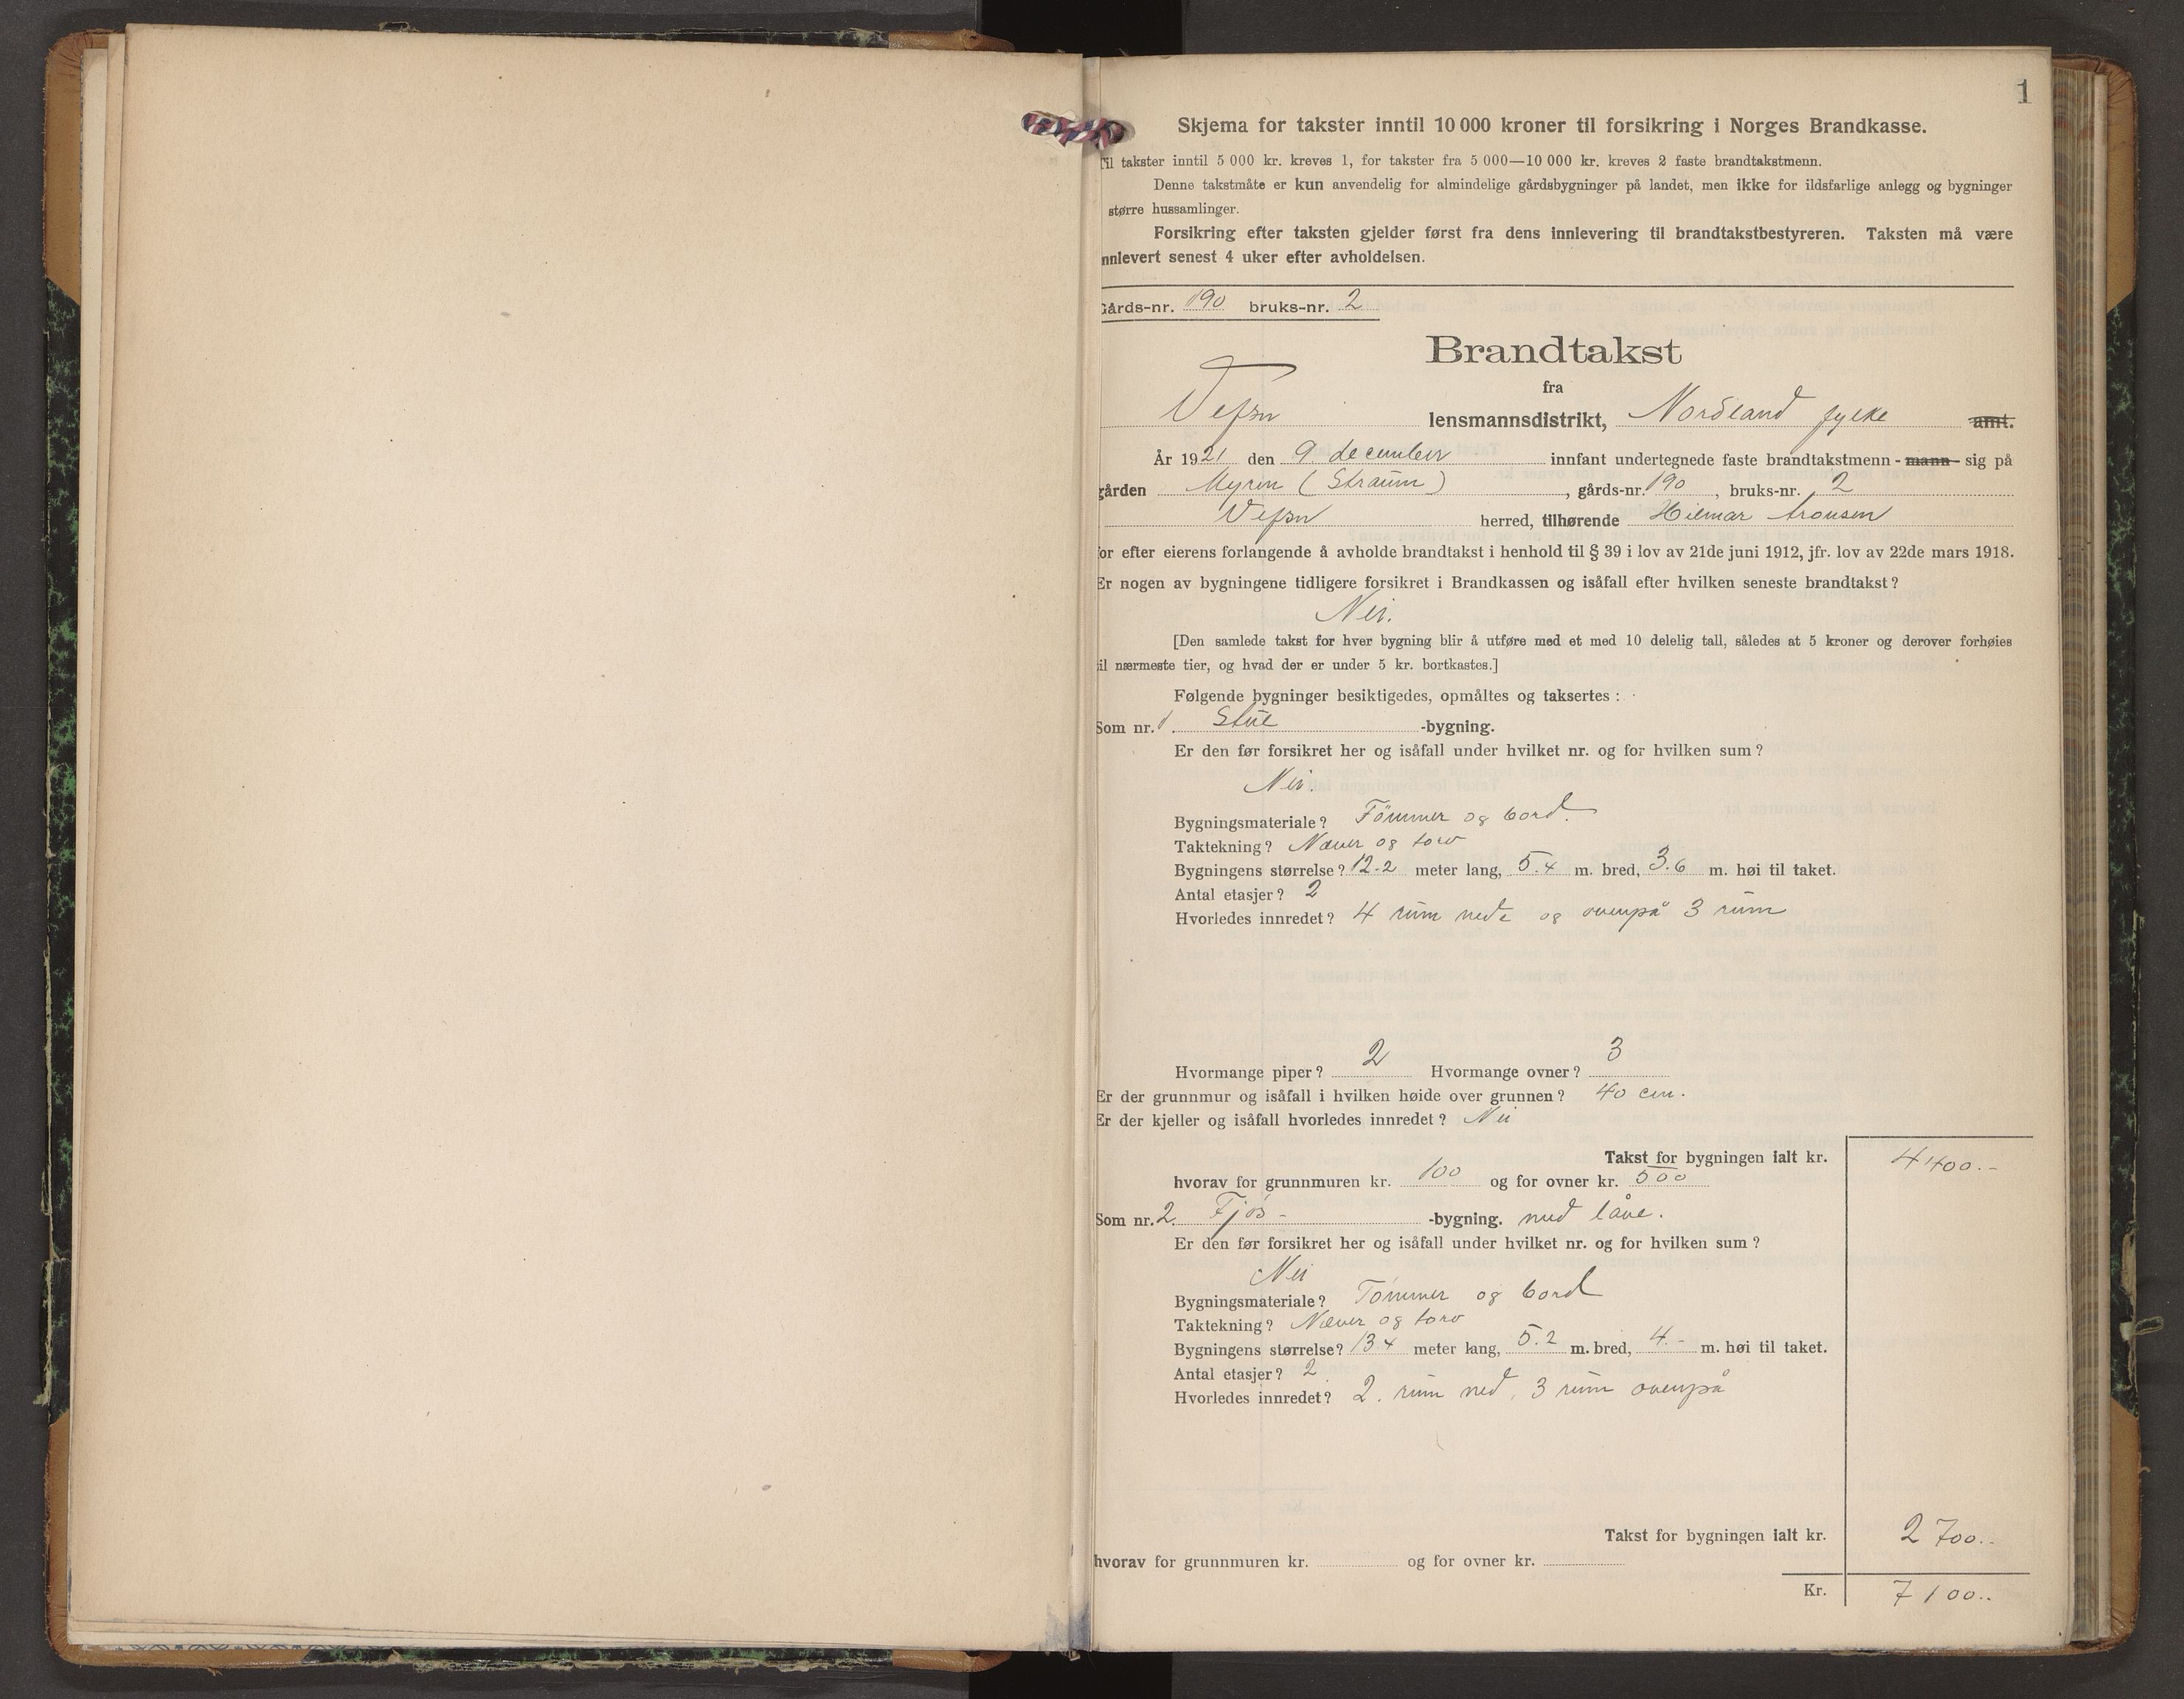 1
Skjema for takster inntil 10 000 kroner til forsikring i Norges Brandkasse.
Til takster inntil 5 000 kr. kreves 1, for takster fra 5 000—10 000 kr. kreves 2 faste brandtakstmenn.
Denne takstmåte er kun anvendelig for almindelige gårdsbygninger på landet, men ikke for ildsfarlige anlegg og bygninger
større hussamlinger.
Forsikring efter taksten gjelder først fra dens innlevering til brandtakstbestyreren. Taksten må være
innlevert senest 4 uker efter avholdelsen.
Gårds-nr. 190 bruks-nr. 2
Brandtakst
fra
Vefsn lensmannsdistrikt, Nordland fylke amt.
År 1921 den 9 december innfant undertegnede faste brandtakstmenn - mann - sig på
gården Myren (Straum), gårds-nr. 190, bruks-nr. 2
Vefsn herred, tilhørende Hilmar Aronsen
for efter eierens forlangende å avholde brandtakst i henhold til § 39 i lov av 21de juni 1912, jfr. lov av 22de mars 1918.
Er nogen av bygningene tidligere forsikret i Brandkassen og isåfall efter hvilken seneste brandtakst?
Nei.
[Den samlede takst for hver bygning blir å utføre med et med 10 delelig tall, således at 5 kroner og derover forhøies
til nærmeste tier, og hvad der er under 5 kr. bortkastes.]
Følgende bygninger besiktigedes, opmåltes og taksertes :
Som nr. 1 Stue -bygning.
Er den før forsikret her og isåfall under hvilket nr. og for hvilken sum?
Nei.
Bygningsmateriale? Tömmer og bord.
Taktekning? Næver og torv
Bygningens størrelse? 12.2 meter lang, 5.4 m. bred, 3.6 m. høi til taket.
Antal etasjer? 2
Hvorledes innredet? 4 rum nede og ovenpå 3 rum
Hvormange piper? 2 Hvormange ovner? 3
Er der grunnmur og isåfall i hvilken høide over grunnen? 40 cm.
Er der kjeller og isåfall hvorledes innredet? Nei
Takst for bygningen ialt kr. 4400.-
hvorav for grunnmuren kr. 100 og for ovner kr. 500
Som nr. 2. Fjös- -bygning. med låve.
Er den før forsikret her og isåfall under hvilket nr. og for hvilken sum?
Nei
Bygningsmateriale? Tömmer og bord
Taktekning? Næver og torv
Bygningens størrelse? 13 4 meter lang, 5.2 m. bred, 4.- m. høi til taket.
Antal etasjer? 2
Hvorledes innredet? 2. rum ned, 3 rum ovenpå
Takst for bygningen ialt kr. 2 700..
hvorav for grunnmuren kr. og for ovner kr.
Kr. 7 100..